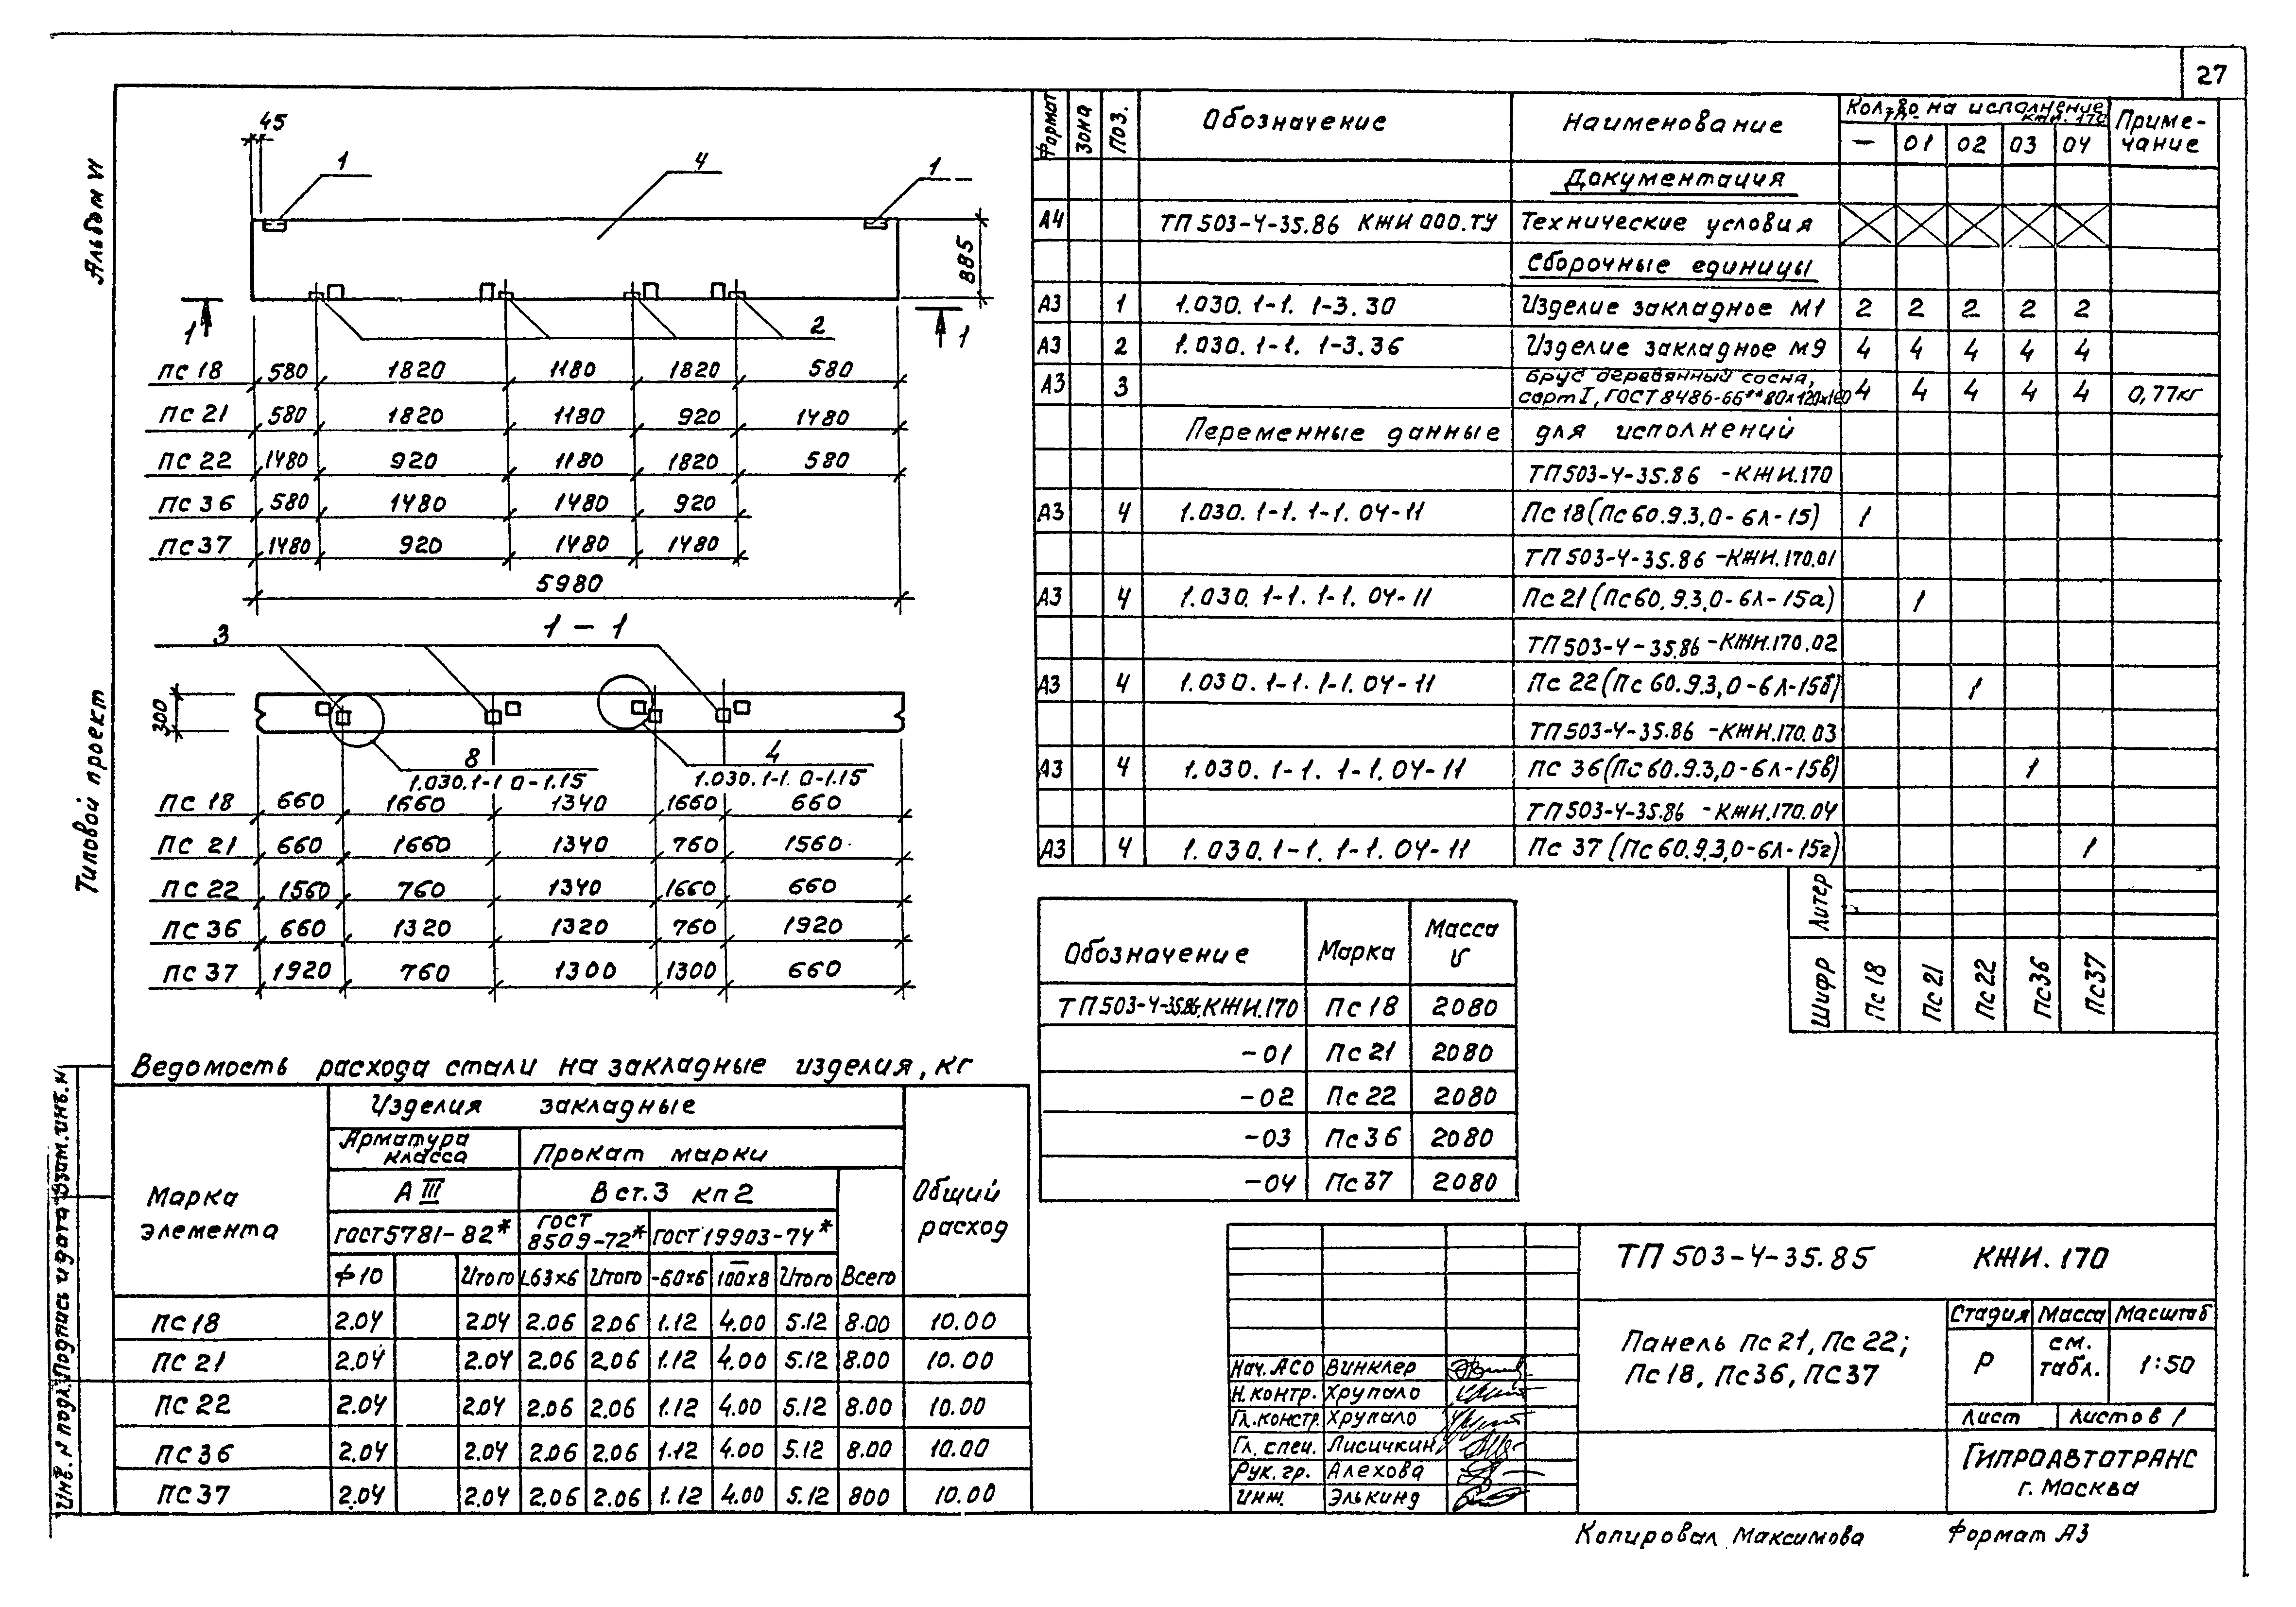 27
Альбом VI
Типовой проект
Инв. № подл. Подпись и дата Взам. инв. №
45
1 4 1
885
1 2 1
Пс 18 580 1820 1180 1820 580
Пс 21 580 1820 1180 920 1480
Пс 22 1480 920 1180 1820 580
Пс 36 580 1480 1480 920
Пс 37 1480 920 1480 1480
5980
1-1
3
300
8 4
1.030.1-1 0-1.15 1.030.1-1. 0-1.15
Пс 18 660 1660 1340 1660 660
Пс 21 660 1660 1340 760 1560
Пс 22 1560 760 1340 1660 660
Пс 36 660 1320 1320 760 1920
Пс 37 1920 760 1300 1300 660
Формат Зона Поз. Обозначение Наименование Кол-во на исполнение Приме-
чание
— 01 02 03 04
Документация
А4 ТП 503-4-35.86 КЖИ 000.ТУ Технические условия
Сборочные единицы
А3 1 1.030.1-1. 1-3.30 Изделие закладное М1 2 2 2 2 2
А3 2 1.030.1-1. 1-3.36 Изделие закладное М9 4 4 4 4 4
А3 3 Брус деревянный сосна,
сорт I, ГОСТ 8486-66** 80х120х160 4 4 4 4 4 0,77кг
Переменные данные для исполнений
ТП 503-4-35.86 -КЖИ.170
А3 4 1.030.1-1. 1-1.04-11 Пс 18 (Пс 60.9.3,0-6Л-15) 1
ТП 503-4-35.86 -КЖИ.170.01
А3 4 1.030.1-1. 1-1.04-11 Пс 21 (Пс 60.9.3,0-6Л-15а) 1
ТП 503-4-35.86 -КЖИ.170.02
А3 4 1.030.1-1. 1-1.04-11 Пс 22 (Пс 60.9.3,0-6Л-15б) 1
ТП 503-4-35.86 -КЖИ.170.03
А3 4 1.030.1-1. 1-1.04-11 Пс 36 (Пс 60.9.3,0-6Л-15в) 1
ТП 503-4-35.86 -КЖИ.170.04
А3 4 1.030.1-1. 1-1.04-11 Пс 37 (Пс 60.9.3,0-6Л-15г) 1
Литер
Шифр Пс 18 Пс 21 Пс 22 Пс 36 Пс 37
Обозначение Марка Масса
ТП 503-4-35.86.КЖИ.170 Пс 18 2080
-01 Пс 21 2080
-02 Пс 22 2080
-03 Пс 36 2080
-04 Пс 37 2080
Ведомость расхода стали на закладные изделия, кг
Марка элемента Изделия закладные Общий расход
Арматура класса Прокат марки
А III В ст.3 кп 2
ГОСТ 5781-82* ГОСТ 8509-72* ГОСТ 19903-74*
ф10 Итого L63х6 Итого -60х6 -100х8 Итого Всего
Пс 18 2.04 2.04 2.06 2.06 1.12 4.00 5.12 8.00 10.00
Пс 21 2.04 2.04 2.06 2.06 1.12 4.00 5.12 8.00 10.00
Пс 22 2.04 2.04 2.06 2.06 1.12 4.00 5.12 8.00 10.00
Пс 36 2.04 2.04 2.06 2.06 1.12 4.00 5.12 8.00 10.00
Пс 37 2.04 2.04 2.06 2.06 1.12 4.00 5.12 800 10.00
ТП 503-4-35.85 КЖИ.170
Панель Пс 21, Пс 22;
Пс 18, Пс 36, Пс 37
Стадия Масса Масштаб
Р см. табл. 1:50
Лист Листов 1
Гипроавтотранс
г. Москва
Нач. АСО Винклер
Н. контр. Хрупало
Гл. констр. Хрупало
Гл. спец. Лисичкин
Рук. гр. Алехова
Инж. Элькинд
Копировал Максимова Формат А3